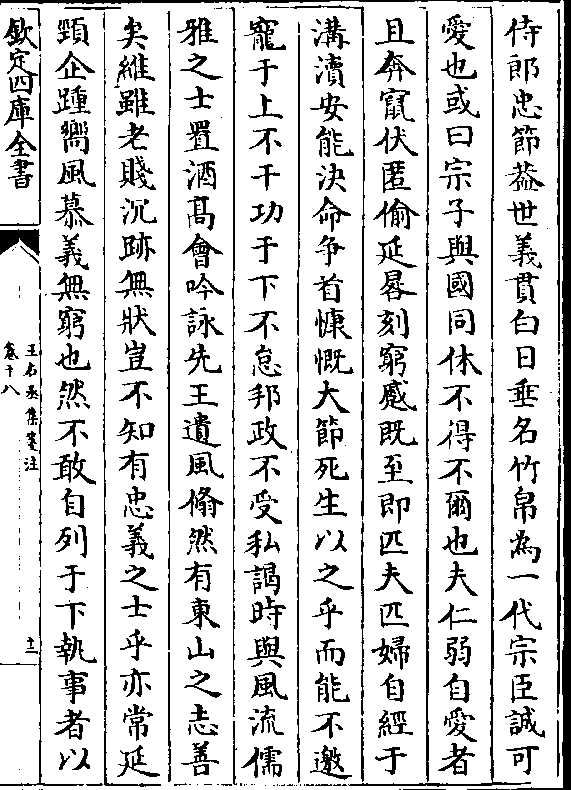 侍郎忠節葢世義貫白日垂名竹帛為一代宗臣誠可
愛也或曰宗子與國同休不得不爾也夫仁弱自愛者
且奔竄伏匿偷延晷刻窮蹙既至即匹夫匹婦自經于
溝瀆安能決命争首慷慨大節死生以之乎而能不邀
寵于上不干功于下不怠邦政不受私謁時與風流儒
雅之士置酒髙會吟詠先王遺風翛然有東山之志善
矣維雖老賤沉跡無狀豈不知有忠義之士乎亦常延
頸企踵嚮風慕義無窮也然不敢自列于下執事者以
欽定四庫全書
王右丞集箋注
卷十八
十二